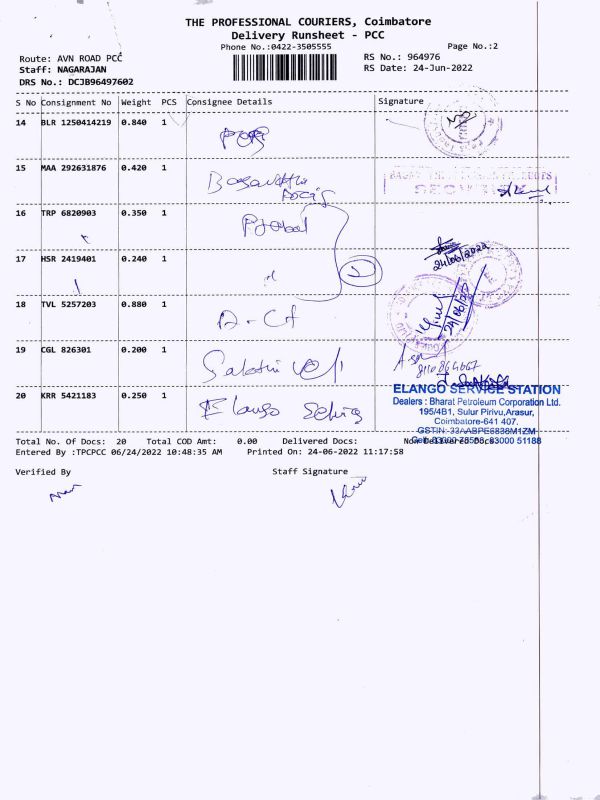 THE PROFESSIONAL COURIERS, Coimbatore
Delivery Runsheet - PCC
Phone No.:0422-3505555
Page No.:2
Route: AVN ROAD PCC
RS No.: 964976
Staff: NAGARAJAN
RS Date: 24-Jun-2022
DRS No.: DCJB96497602
S No Consignment No Weight PCS Consignee Details Signature
14 BLR 1250414219 0.840 1
15 MAA 292631876 0.420 1
16 TRP 6820903 0.350 1
24/06/2022
17 HSR 2419401 0.240 1
24/06/22
18 TVL 5257203 0.880 1
19 CGL 826301 0.200 1
20 KRR 5421183 0.250 1 Elango
ELANGO SERVICE STATION
Dealers : Bharat Petroleum Corporation Ltd.
195/4B1, Sulur Pirivu,Arasur,
Coimbatore-641 407.
Total No. Of Docs: 20 Total COD Amt: 0.00 Delivered Docs: Non Delivered Docs
Entered By :TPCPCC 06/24/2022 10:48:35 AM Printed On: 24-06-2022 11:17:58
Verified By Staff Signature